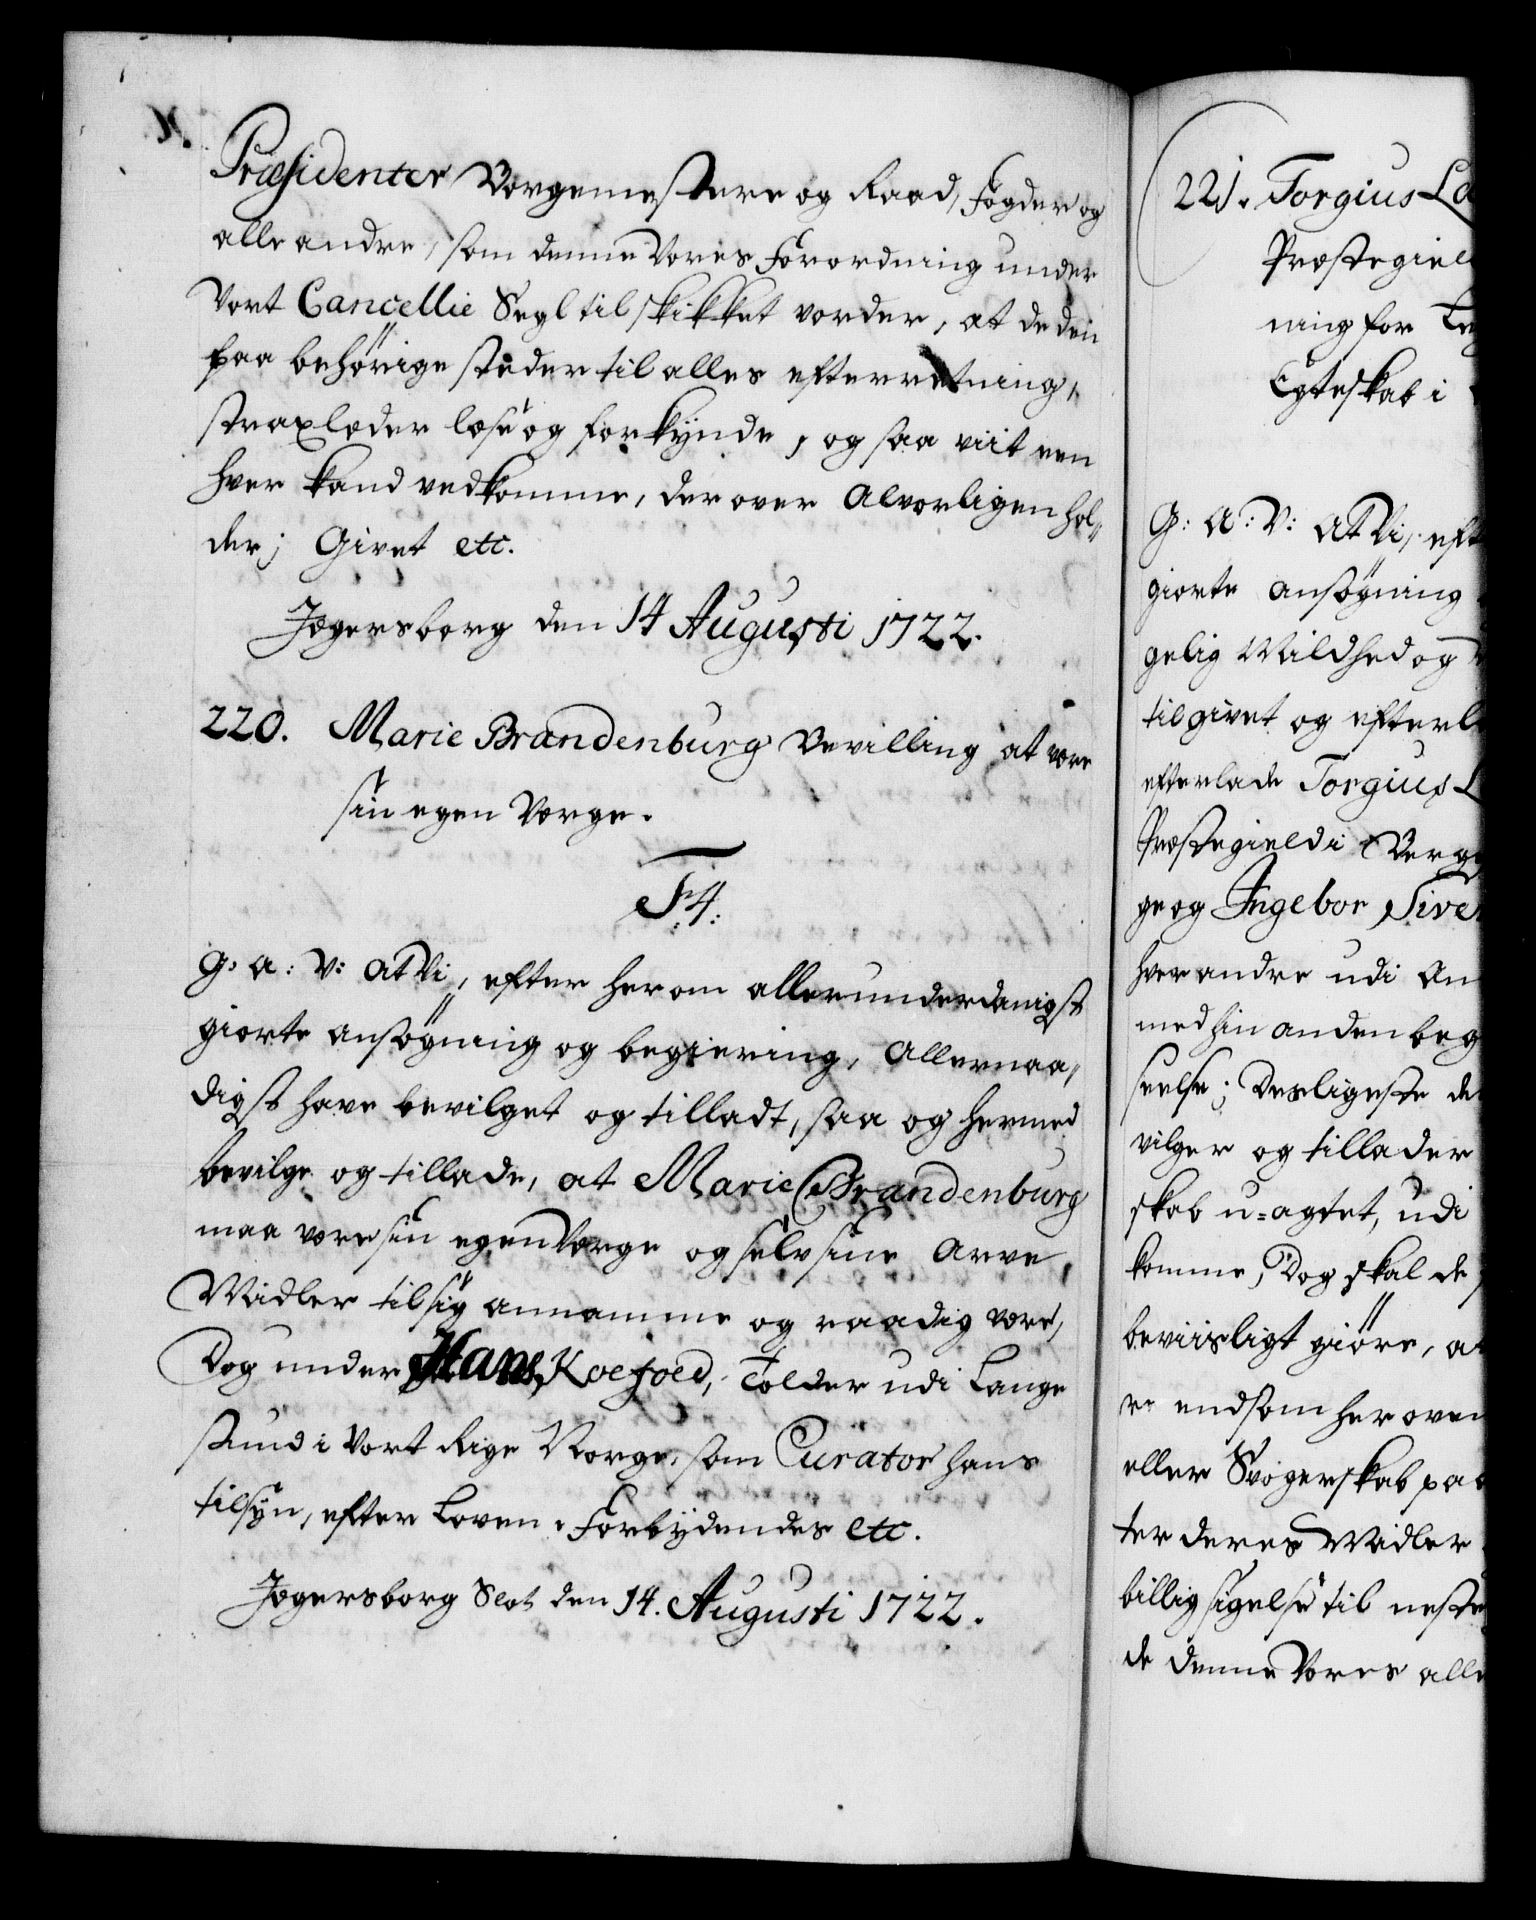 Præsidenter Borgemestere og Raad, Fogder og
alle andre, som denne Vores Forordning under
Vort Cancellie Segl tilskikket vorder, at de den
paa behörige steder til alles efterretning,
strax lader læse og forkynde, og saa viit een
hver kand vedkomme, der over Alvorligen hol-
der; Givet etc.
Jægersborg den 14 Augusti 1722.
220. Marie Brandenburg Bevilling at være
sin egen Værge.
F4.
G: A: V: At Vi, efter her om allerunderdanigst
giorte ansögning og begiering, Allernaa-
digst have bevilget og tilladt, saa og hermed
bevilge og tillade, at Marie Brandenburg
maa være sin egen Værge og selv sine Arve
Midler til sig annamme og raadig være,
Dog under Hans Koefoed, Tolder udi Lange
sund i Vort Rige Norge, som Curator hans
tilsyn, efter Loven. Forbydendes etc.
Jægersborg Slot den 14. Augusti 1722.
221. Torgius
Præstegiel
ning for
Egteskab i
G: A: V: At Vi, eft
giorte ansögning
gelig Mildhed og
til givet og efterl
efterlade Torgius
Præstegield i Berg
ge og Ingebor Sive
hver andre udi
med hin anden beg
seelse; Desligeste de
vilger og tillader
skab u-agtet, udi
komme, Dog skal de
beviisligt giöre, at
er end som her oven
eller Svogerskab paa
ter deres Midler
billig sigelse til næste
de denne Vores alle